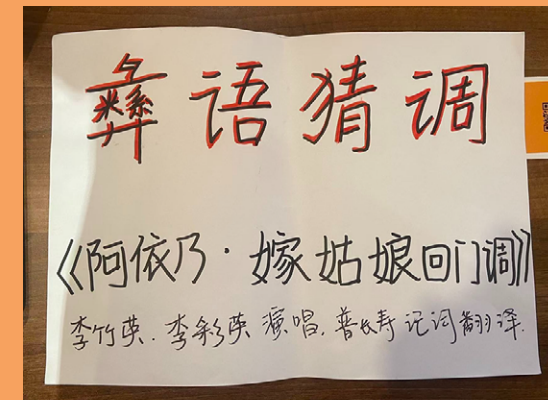 彝语猜调
《阿依乃·嫁姑娘回门调》
李竹英.李彩英演唱.普长寿记词翻译.